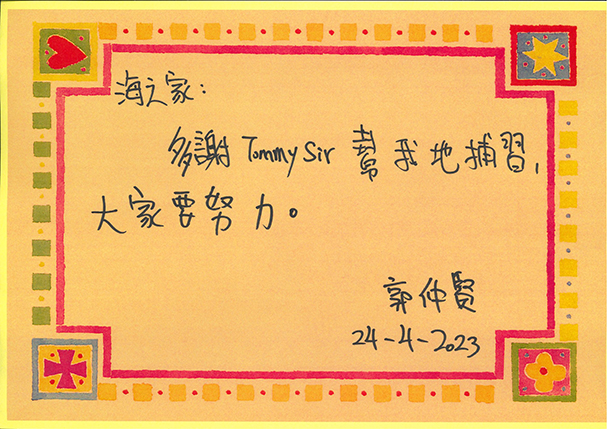 海之家：
多謝 Tommy Sir 幫我地捕習,
大家要努力。
郭仲賢
24-4-2023